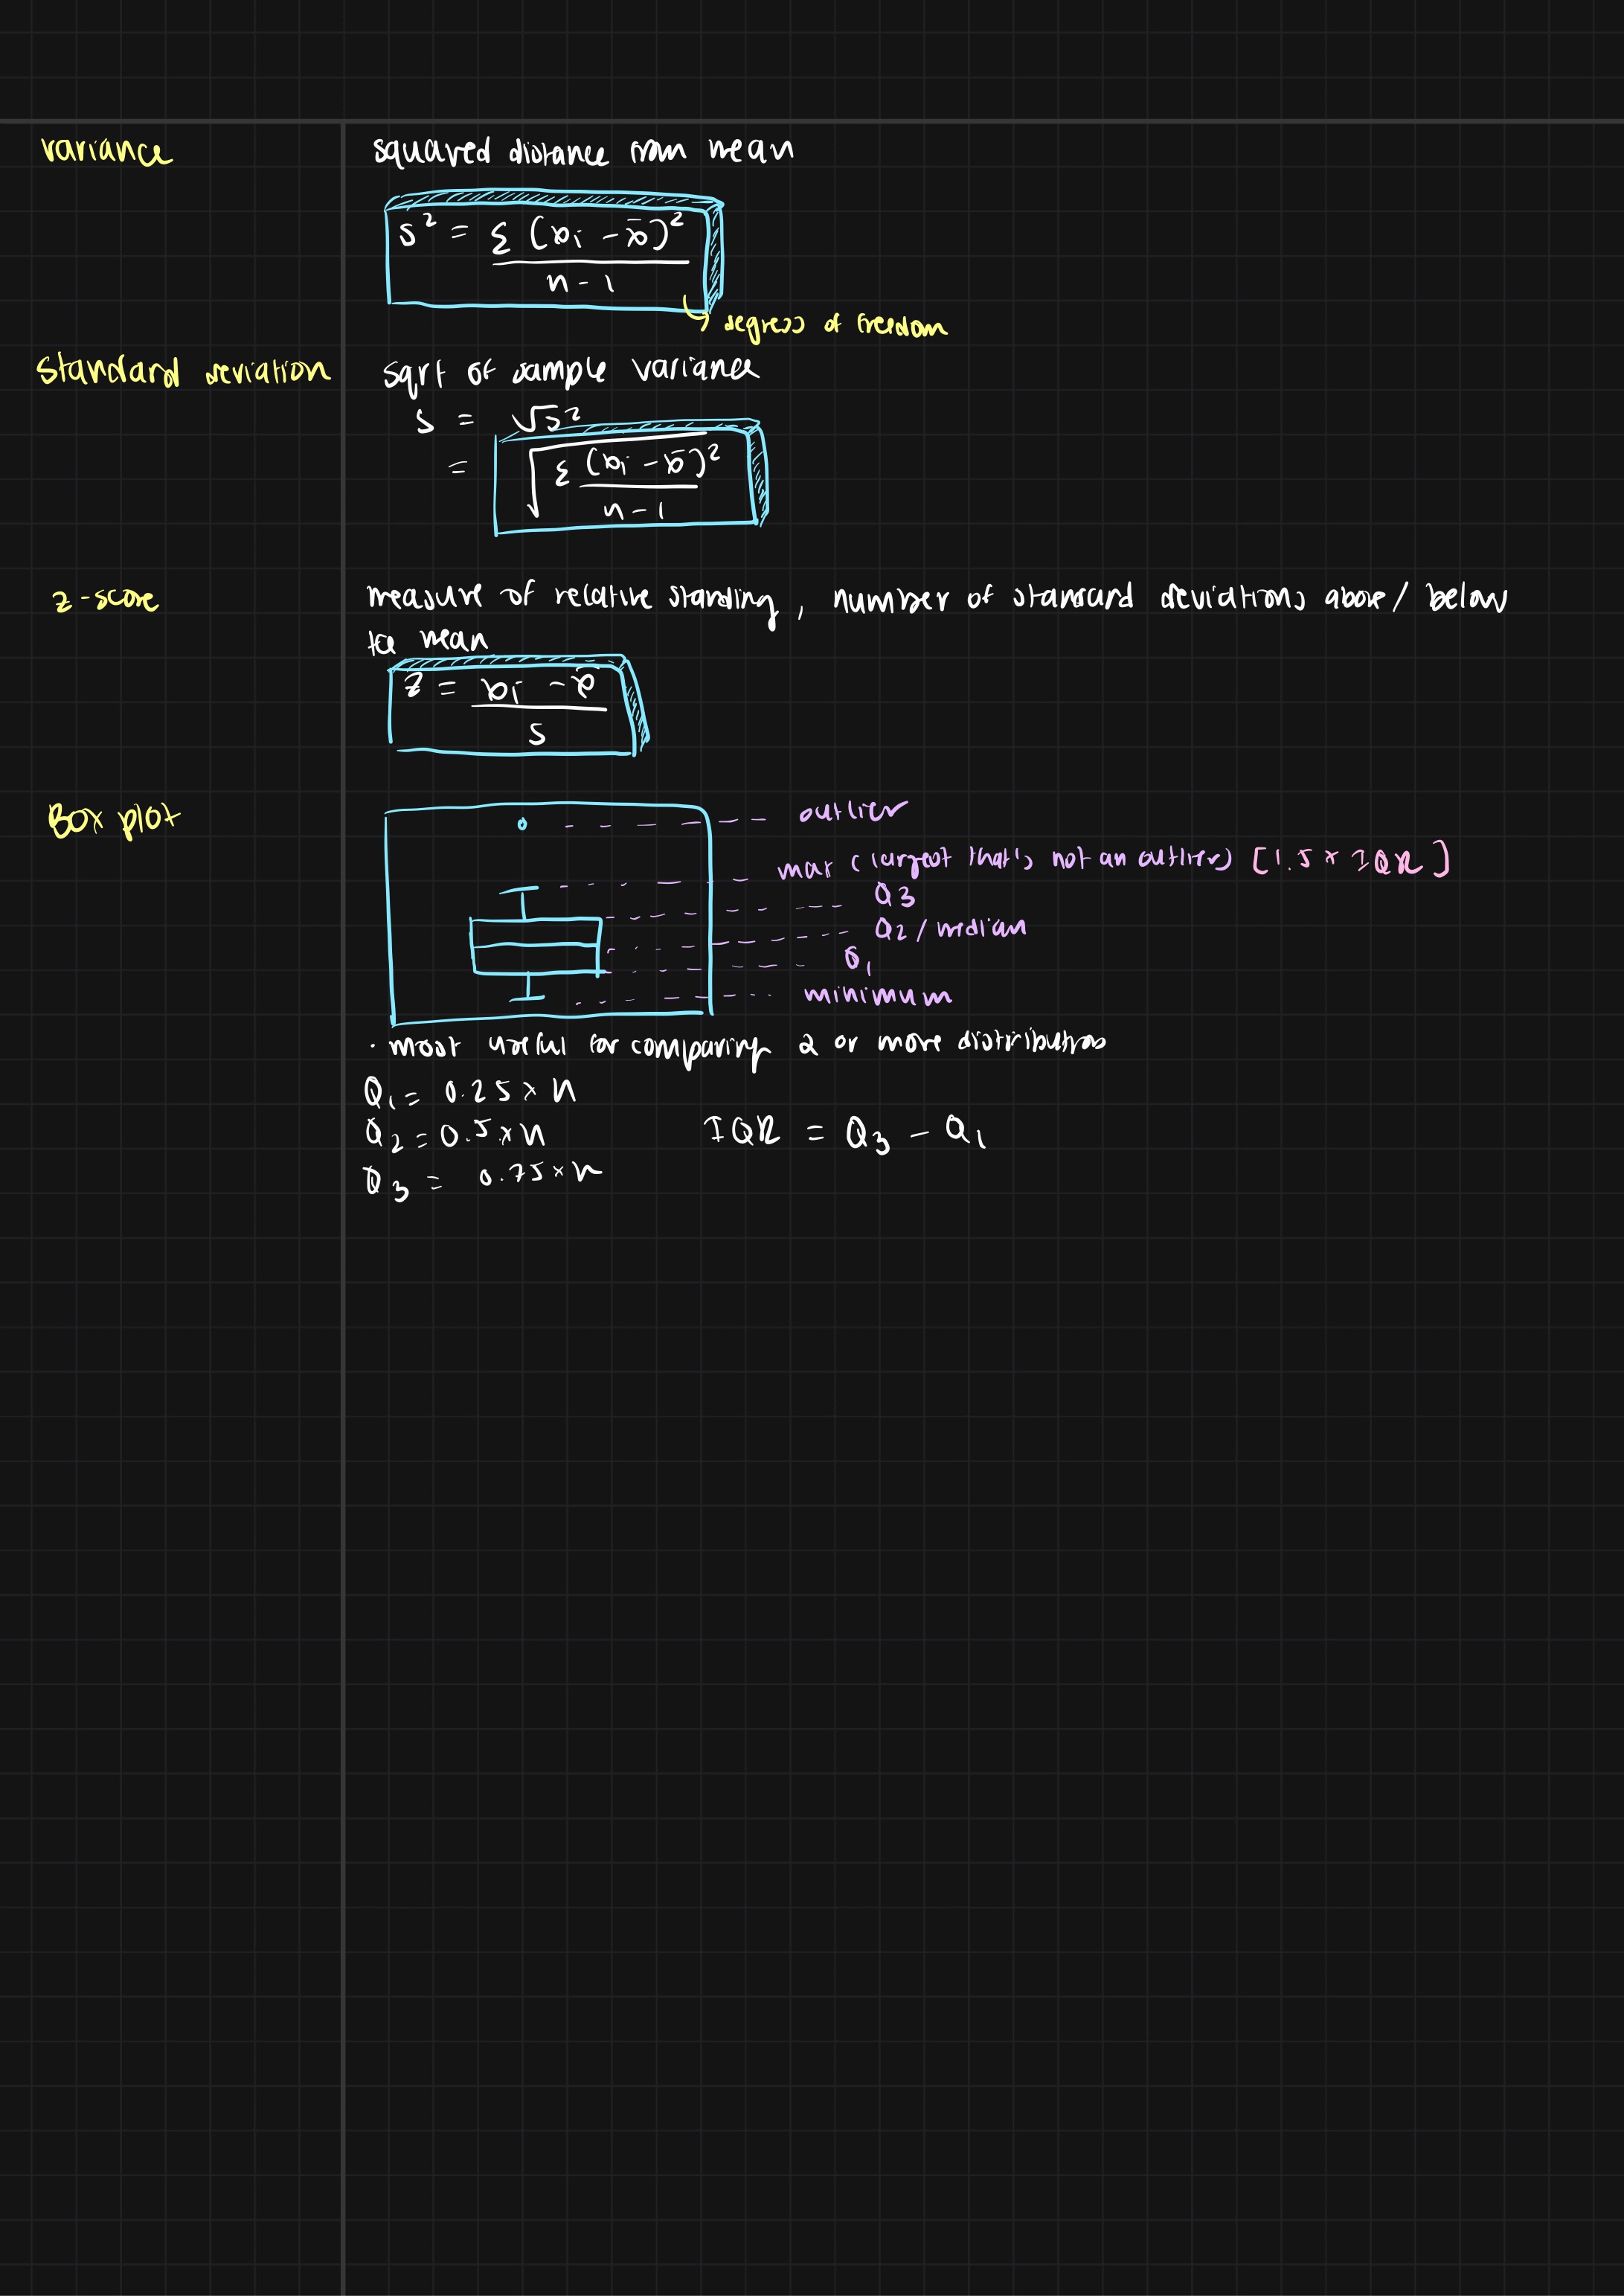 variance
squared distance from mean
s² = Σ (xi - x̄)²
n - 1
degress of freedom
standard deviation
sqrt of sample variance
s = √s²
= √Σ (xi - x̄)²
n - 1
z-score
measure of relative standing, number of standard deviations above / below
the mean
z = xi - x̄
s
Box plot
outlier
max (largest that's not an outlier) [1.5 × IQR]
Q3
Q2 / median
Q1
minimum
· most useful for comparing 2 or more distributions
Q1 = 0.25 × n
Q2 = 0.5 × n
IQR = Q3 - Q1
Q3 = 0.75 × n